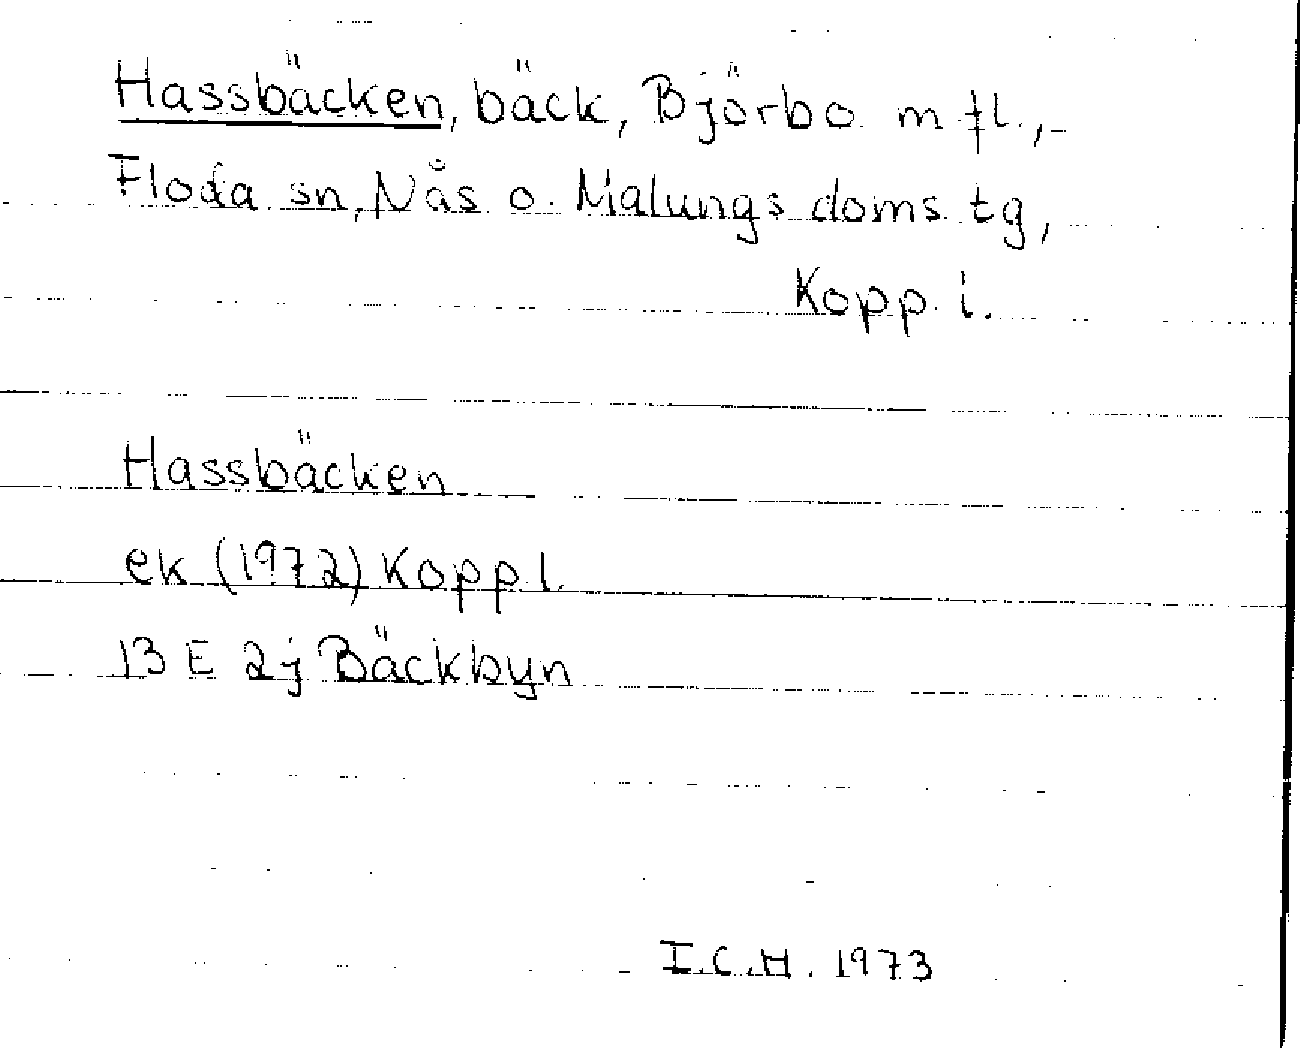 Hassbäcken, bäck, Björbo m fl.,
Floda sn, Nås o. Malungs doms. tg,
Kopp. l.
Hassbäcken
ek (1972) Kopp l.
13 E 2j Bäckbyn
I.C.H. 1973